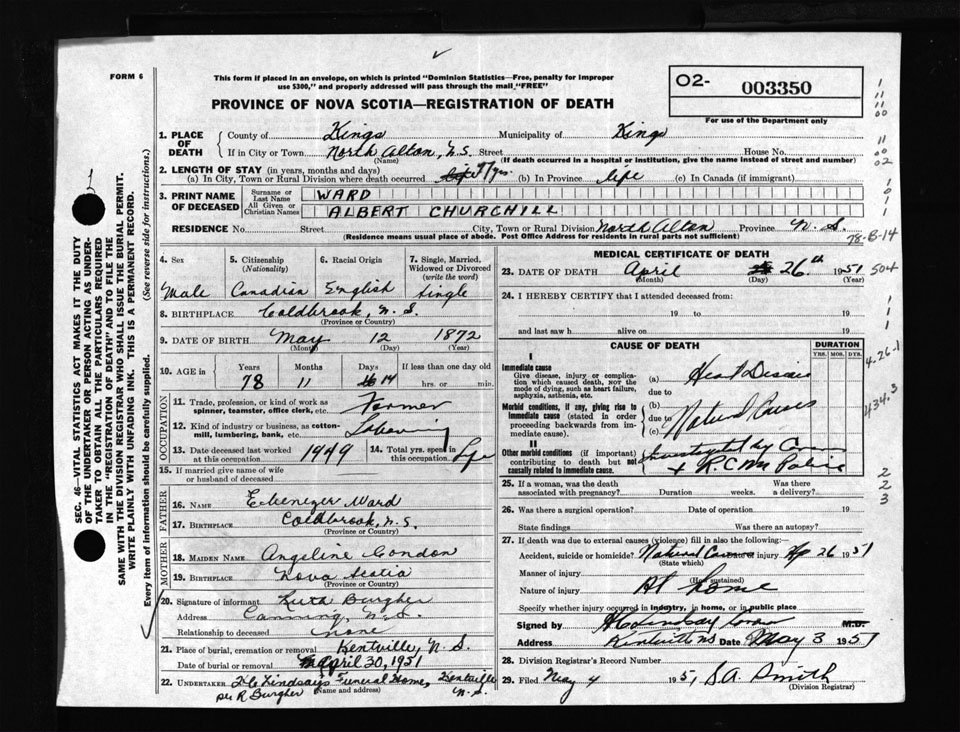 FORM 6
This form if placed in an envelope, on which is printed "Dominion Statistics—Free, penalty for improper
use $300," and properly addressed will pass through the mail "FREE"
PROVINCE OF NOVA SCOTIA—REGISTRATION OF DEATH
O2- 003350
For use of the Department only
SEC. 46—VITAL STATISTICS ACT MAKES IT THE DUTY
OF THE UNDERTAKER OR PERSON ACTING AS UNDER-
TAKER TO OBTAIN ALL THE PARTICULARS REQUIRED
IN THE "REGISTRATION OF DEATH" AND TO FILE THE
SAME WITH THE DIVISION REGISTRAR WHO SHALL ISSUE THE BURIAL PERMIT.
WRITE PLAINLY WITH UNFADING INK. THIS IS A PERMANENT RECORD.
Every item of information should be carefully supplied. (See reverse side for instructions.)
1. PLACE OF DEATH
County of Kings Municipality of Kings
If in City or Town North Alton, N.S. Street House No.
(Name) (If death occurred in a hospital or institution, give the name instead of street and number)
2. LENGTH OF STAY (in years, months and days)
(a) In City, Town or Rural Division where death occurred yrs. (b) In Province life (c) In Canada (if immigrant)
3. PRINT NAME OF DECEASED
Surname or Last Name WARD
All Given or Christian Names ALBERT CHURCHILL
RESIDENCE No. Street City, Town or Rural Division North Alton Province N. S.
(Residence means usual place of abode. Post Office Address for residents in rural parts not sufficient)
78-B-14
4. Sex Male
5. Citizenship (Nationality) Canadian
6. Racial Origin English
7. Single, Married, Widowed or Divorced (write the word) Single
8. BIRTHPLACE Coldbrook, N.S.
(Province or Country)
9. DATE OF BIRTH May 12 1872
(Month) (Day) (Year)
10. AGE in Years 78 Months 11 Days 14 If less than one day old hrs. or min.
OCCUPATION
11. Trade, profession, or kind of work as
spinner, teamster, office clerk, etc. Farmer
12. Kind of industry or business, as cotton-
mill, lumbering, bank, etc.
13. Date deceased last worked
at this occupation 1949
14. Total yrs. spent
in this occupation Life
15. If married give name of wife
or husband of deceased
FATHER
16. NAME Ebenezer Ward
17. BIRTHPLACE Coldbrook, N.S.
(Province or Country)
MOTHER
18. MAIDEN NAME Angeline Condon
19. BIRTHPLACE Nova Scotia
(Province or Country)
20. Signature of informant Ruth Burgher
Address Canning, N.S.
Relationship to deceased none
21. Place of burial, cremation or removal Kentville, N. S.
Date of burial or removal April 30, 1951
22. UNDERTAKER H.C. Lindsay's Funeral Home, Kentville
per R Burgher (Name and address) N.S.
MEDICAL CERTIFICATE OF DEATH
23. DATE OF DEATH April 26th 1951
(Month) (Day) (Year)
504
24. I HEREBY CERTIFY that I attended deceased from:
19 to 19
and last saw h alive on 19
CAUSE OF DEATH
DURATION
YRS. MOS. DYS.
I
Immediate cause
Give disease, injury or compli-
cation which caused death, NOT the
mode of dying, such as heart failure,
asphyxia, asthenia, etc.
(a) Heart Disease
due to
Morbid conditions, if any, giving rise to
immediate cause (stated in order
proceeding backwards from im-
mediate cause).
(b)
due to
(c) Natural Causes
II
Other morbid conditions (if important)
contributing to death but not
causally related to immediate cause.
Investigated by
+ R.C.M. Police
4-26-1
434.3
25. If a woman, was the death
associated with pregnancy? Duration weeks. Was there
a delivery?
26. Was there a surgical operation? Date of operation 19
State findings Was there an autopsy?
27. If death was due to external causes (violence) fill in also the following:—
Accident, suicide or homicide? Natural Causes Date of injury Ap 26 1951
(State which)
Manner of injury
(How sustained)
Nature of injury At home
Specify whether injury occurred in industry, in home, or in public place
Signed by H C Lindsay M.D.
Address Kentville NS Date May 3 1951
28. Division Registrar's Record Number
29. Filed May 4 1951 S.A. Smith
(Division Registrar)